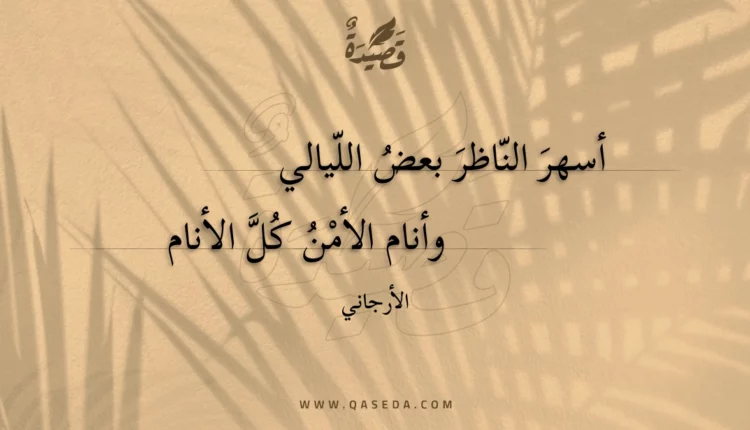 قَصِيْدَةٌ
أسهرَ النّاظرَ بعضُ اللّيالي
وأنام الأمْنُ كُلَّ الأنام
الأرجاني
WWW.QASEDA.COM